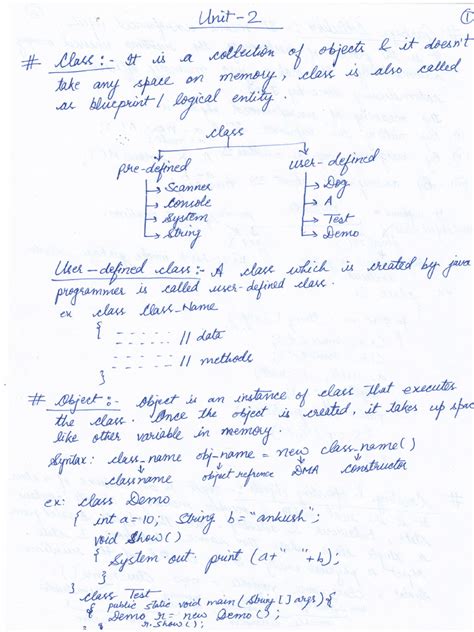 Unit-2
1
# Class:- It is a collection of objects & it doesn't
take any space on memory, class is also called
as blueprint / logical entity.
class
pre-defined user-defined
Scanner Dog
Console A
System Test
String Demo
User-defined class:- A class which is created by java
programmer is called user-defined class.
ex class Class_Name
{ ------ // data
------ // methods
}
# Object:- Object is an instance of class that executes
the class. Once the object is created, it takes up space
like other variable in memory.
Syntax: class_name obj-name = new class_name()
classname object refrence DMA constructor
ex: class Demo
{ int a=10; String b="ankush";
void Show()
{ System.out.print (a+" "+b);
}
} class Test
{ public static void main(String [] args){
Demo r= new Demo();
r.show();